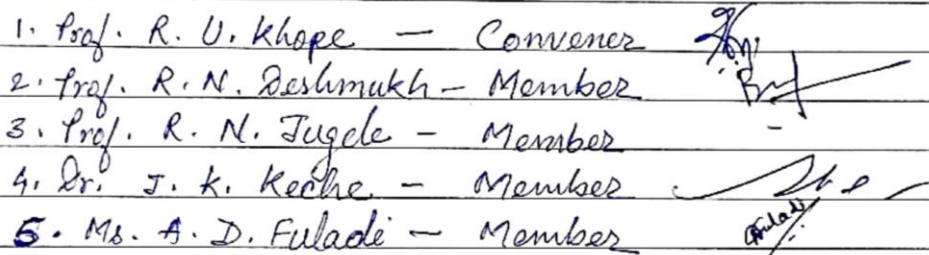 1. Prof. R. U. Khope — Convener
2. Prof. R. N. Deshmukh — Member
3. Prof. R. N. Jugele - Member -
4. Dr. J. K. Keche - Member
5. Ms. A. D. Fuladi - Member Fuladi